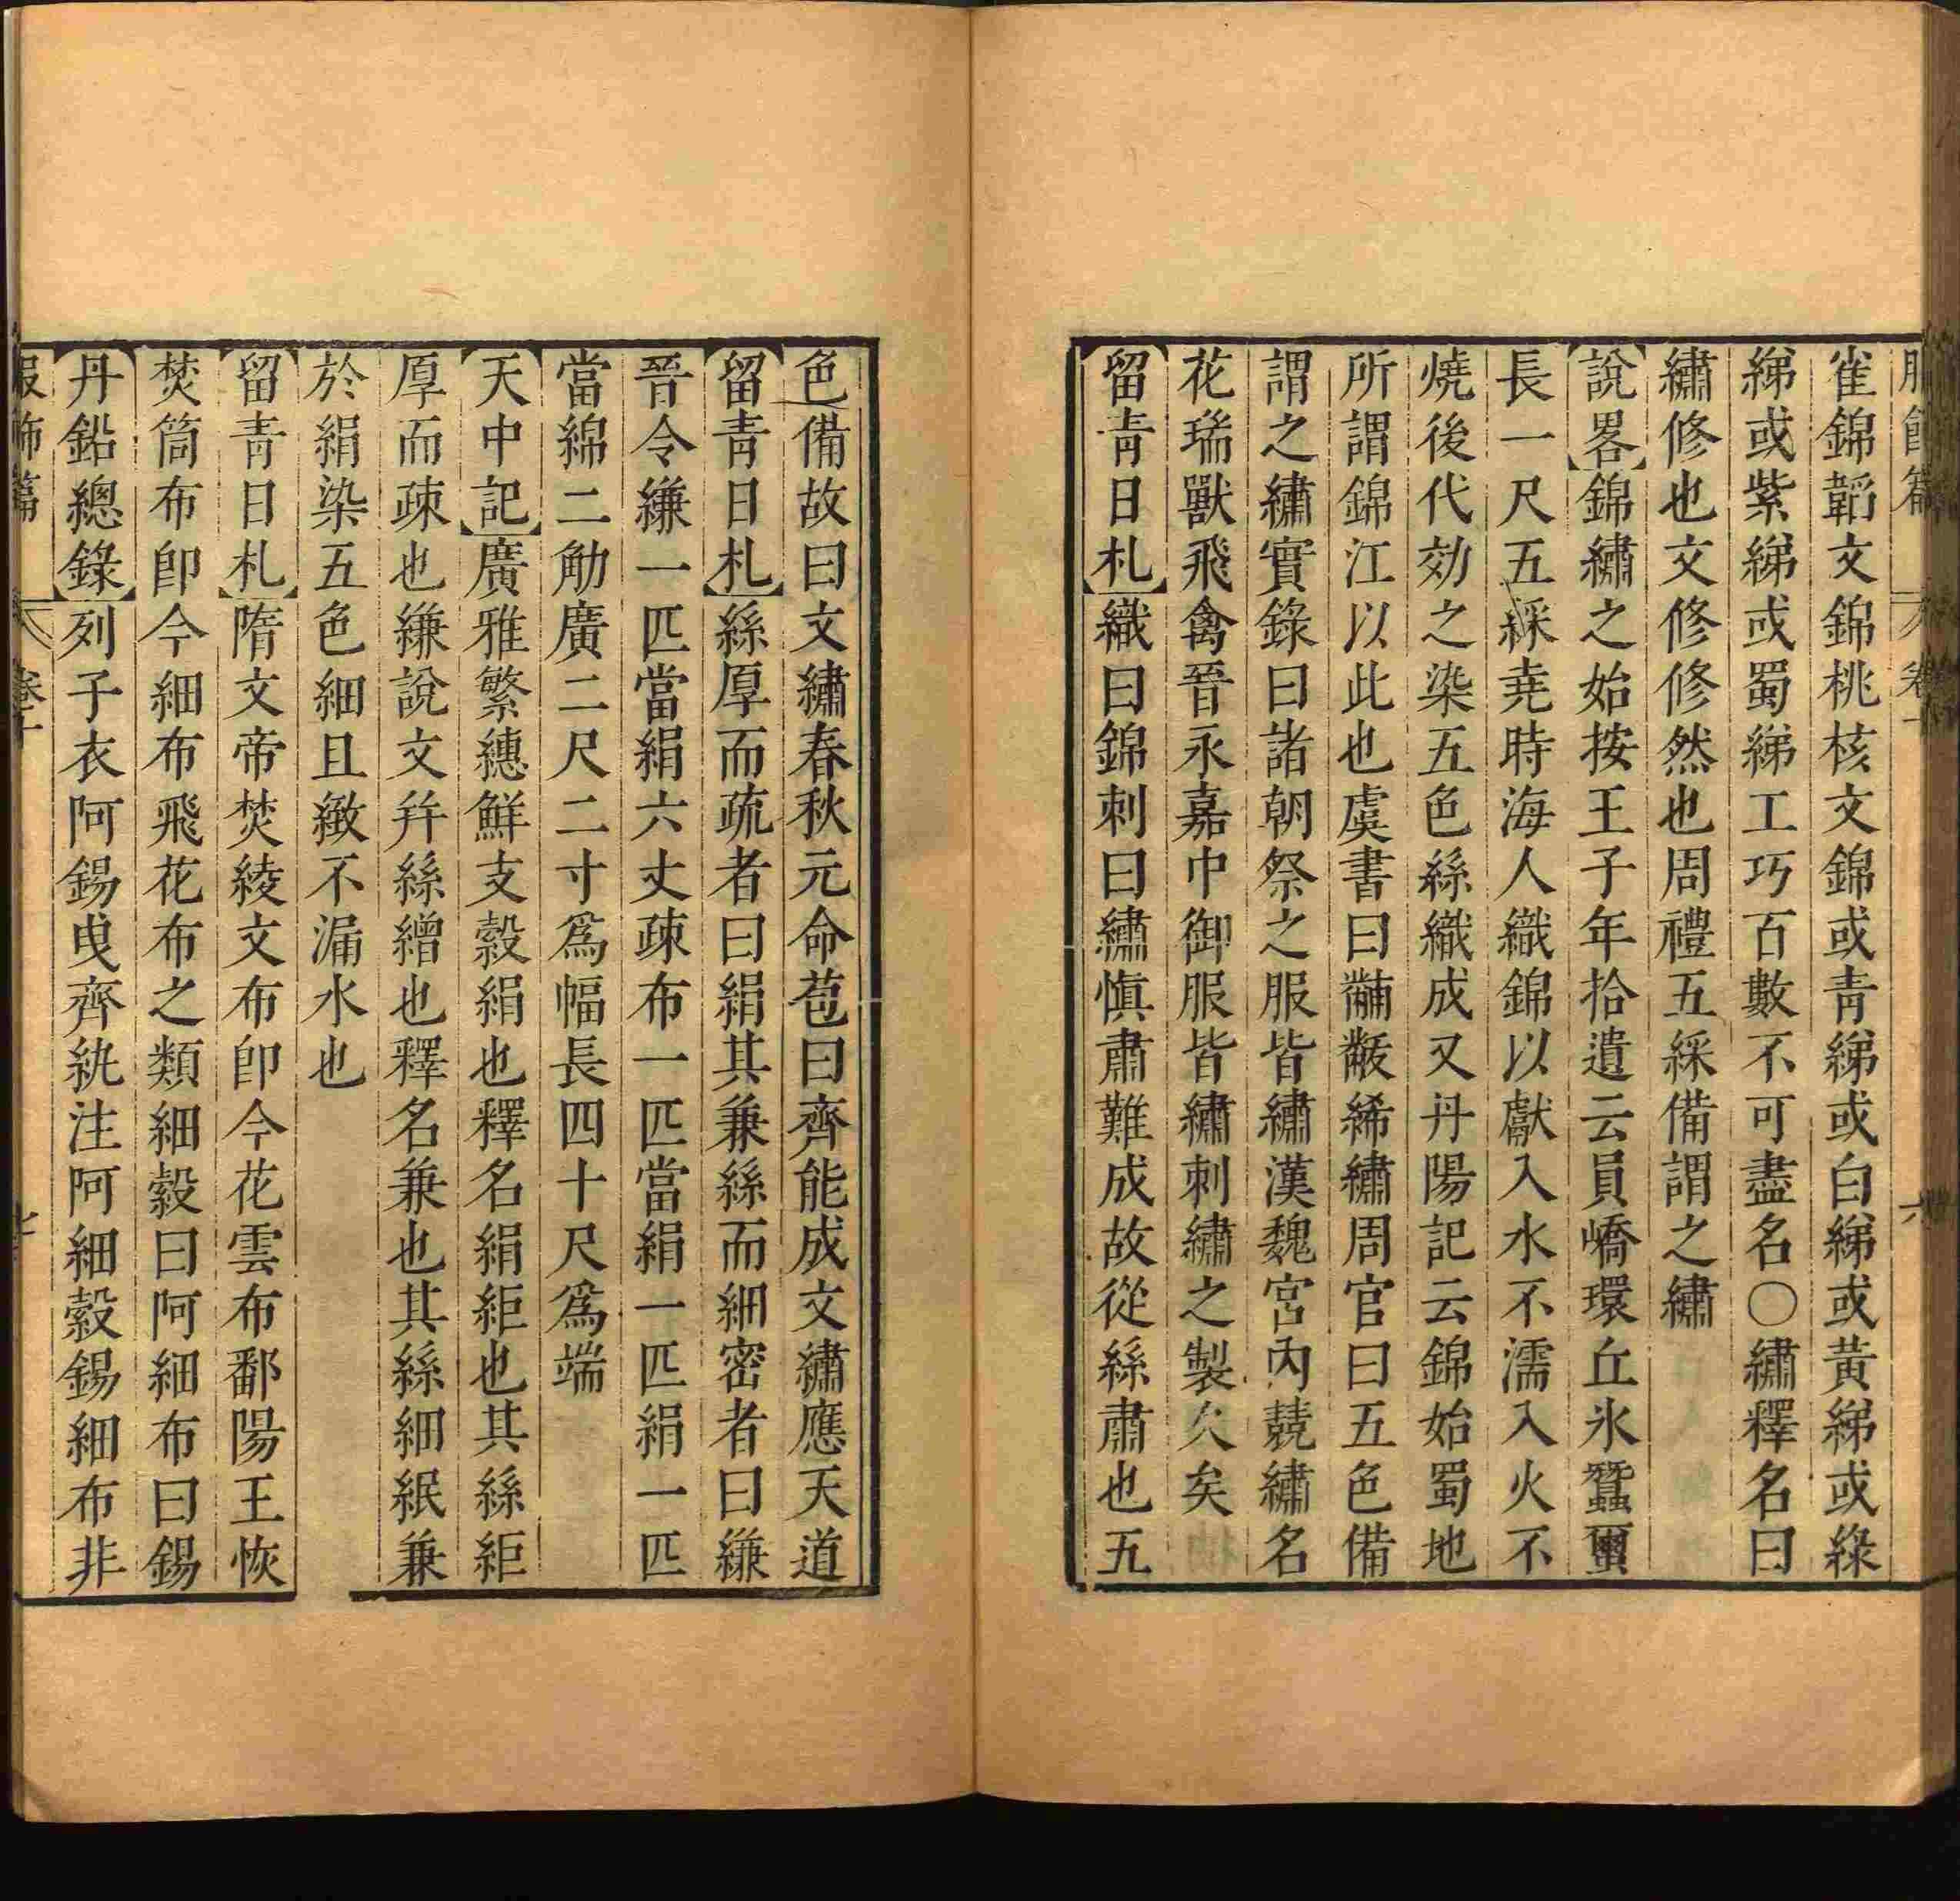 服飾篇 卷十 六
雀錦韜文錦桃核文錦或靑綈或白綈或黃綈或綠
綈或紫綈或蜀綈工巧百數不可盡名○繡釋名曰
繡修也文修修然也周禮五綵備謂之繡
【說畧】錦繡之始按王子年拾遺云員嶠環丘氷蠶璽
長一尺五綵堯時海人織錦以獻入水不濡入火不
燒後代効之染五色絲織成又丹陽記云錦始蜀地
所謂錦江以此也虞書曰黼黻絺繡周官曰五色備
謂之繡實錄曰諸朝祭之服皆繡漢魏宮內兢繡名
花瑞獸飛禽晉永嘉中御服皆繡刺繡之製久矣
【留靑日札】織曰錦刺曰繡愼肅難成故從絲肅也五
色備故曰文繡春秋元命苞曰齊能成文繡應天道
【留靑日札】絲厚而疏者曰絹其兼絲而細密者曰縑
晉令縑一匹當絹六丈疎布一匹當絹一匹絹一匹
當綿二觔廣二尺二寸爲幅長四十尺爲端
【天中記】廣雅繁總鮮支縠絹也釋名絹䋎也其絲䋎
厚而疎也縑說文幷絲繒也釋名兼也其絲細緻兼
於絹染五色細且緻不漏水也
【留靑日札】隋文帝焚綾文布卽今花雲布鄱陽王恢
焚筒布卽今細布飛花布之類細縠曰阿細布曰錫
【丹鉛總錄】列子衣阿錫曳齊紈注阿細縠錫細布非
服飾篇 卷十 七